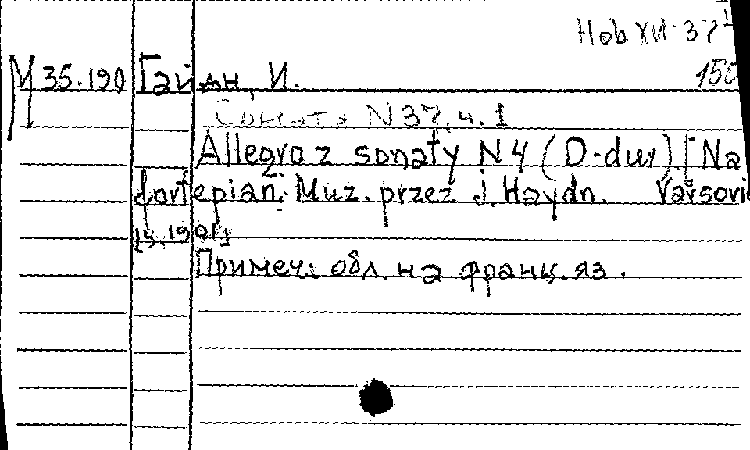 Hob XVI-37¹
М 35.190 Гайдн, И.
Соната N37, ч.1
Allegro z sonaty N4 (D-dur). [Na
fortepian. Muz. przez J. Haydn. Varsovie
[s. 1901]
Примеч: обл. на франц. яз.